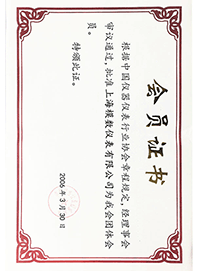 会员证书
根据中国仪器仪表行业协会章程规定，经理事会
审议通过，批准上海模数仪表有限公司为我会团体会
员。
特颁此证。
2006年3月30日